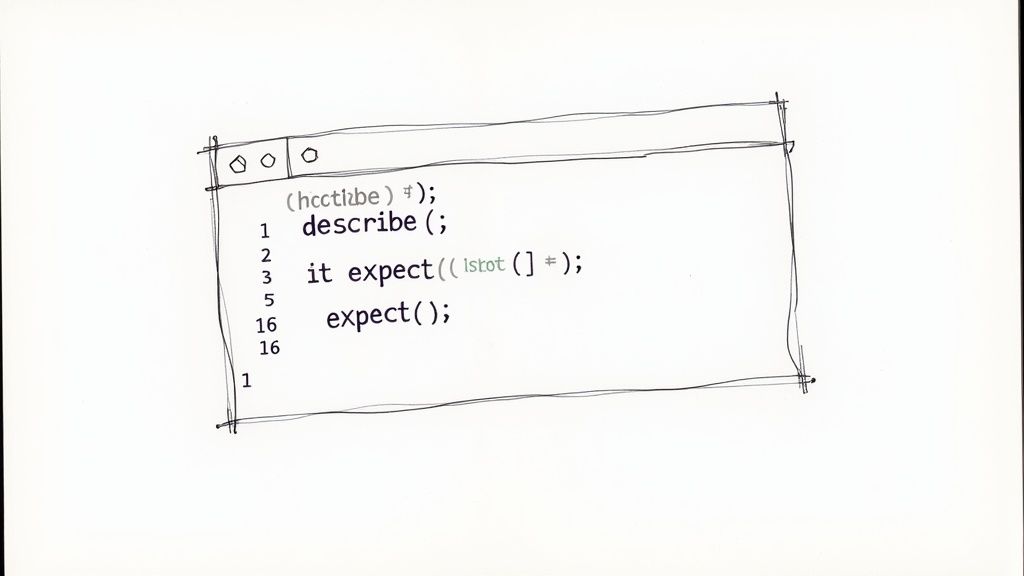 );
1 describe(;
2
3 it expect(( (] = );
5
16 expect();
16
1